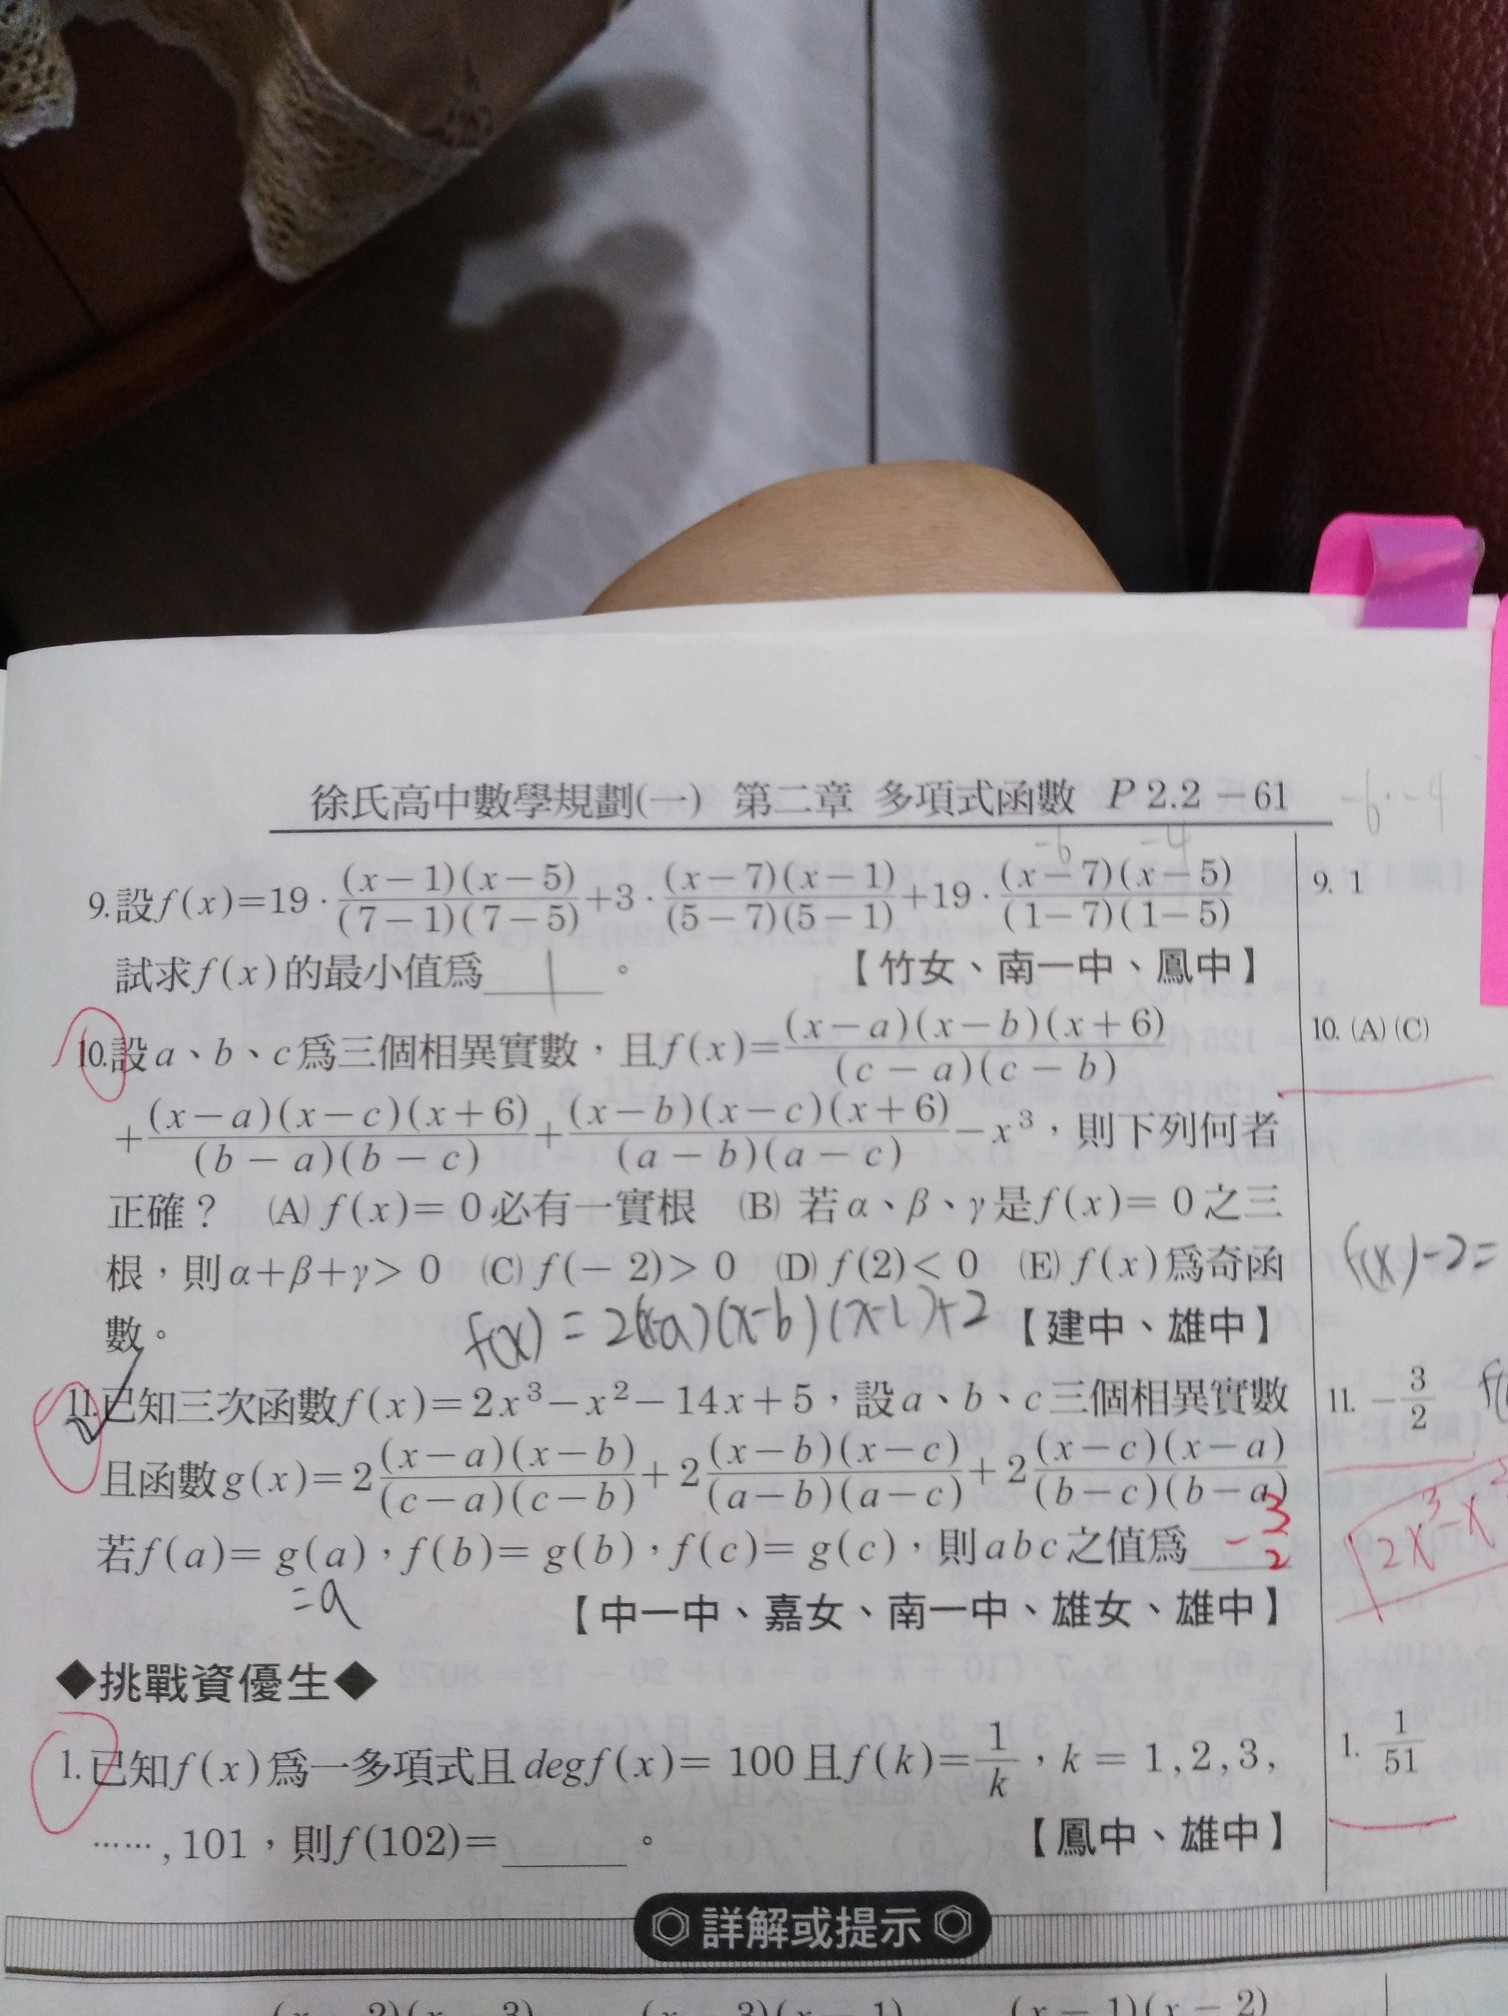 徐氏高中數學規劃(一) 第二章 多項式函數 P 2.2－61
-6·-4
-6 -4
9.設f(x)=19·(x－1)(x－5)/(7－1)(7－5)+3·(x－7)(x－1)/(5－7)(5－1)+19·(x－7)(x－5)/(1－7)(1－5)
9. 1
試求f(x)的最小值爲 1 。 【竹女、南一中、鳳中】
10.設a、b、c爲三個相異實數，且f(x)=(x－a)(x－b)(x+6)/(c－a)(c－b)
10. (A)(C)
+(x－a)(x－c)(x+6)/(b－a)(b－c)+(x－b)(x－c)(x+6)/(a－b)(a－c)－x³，則下列何者
正確？ (A) f(x)= 0必有一實根 (B) 若α、β、γ是f(x)= 0之三
根，則α+β+γ> 0 (C) f(－2)> 0 (D) f(2)< 0 (E) f(x)爲奇函
f(x)-2=
數。 【建中、雄中】
f(x) = 2(x-a)(x-b)(x-c)+2
11.已知三次函數f(x)=2x³－x²－14x+5，設a、b、c三個相異實數
11. －3/2
且函數g(x)=2(x－a)(x－b)/(c－a)(c－b)+2(x－b)(x－c)/(a－b)(a－c)+2(x－c)(x－a)/(b－c)(b－a)
若f(a)= g(a)，f(b)= g(b)，f(c)= g(c)，則abc之值爲 -3/2
2x³-x²
=a
【中一中、嘉女、南一中、雄女、雄中】
◆挑戰資優生◆
1.已知f(x)爲一多項式且degf(x)= 100且f(k)=1/k，k = 1,2,3,
1. 1/51
……,101，則f(102)=＿＿＿。 【鳳中、雄中】
詳解或提示
(x－1)(x－2)